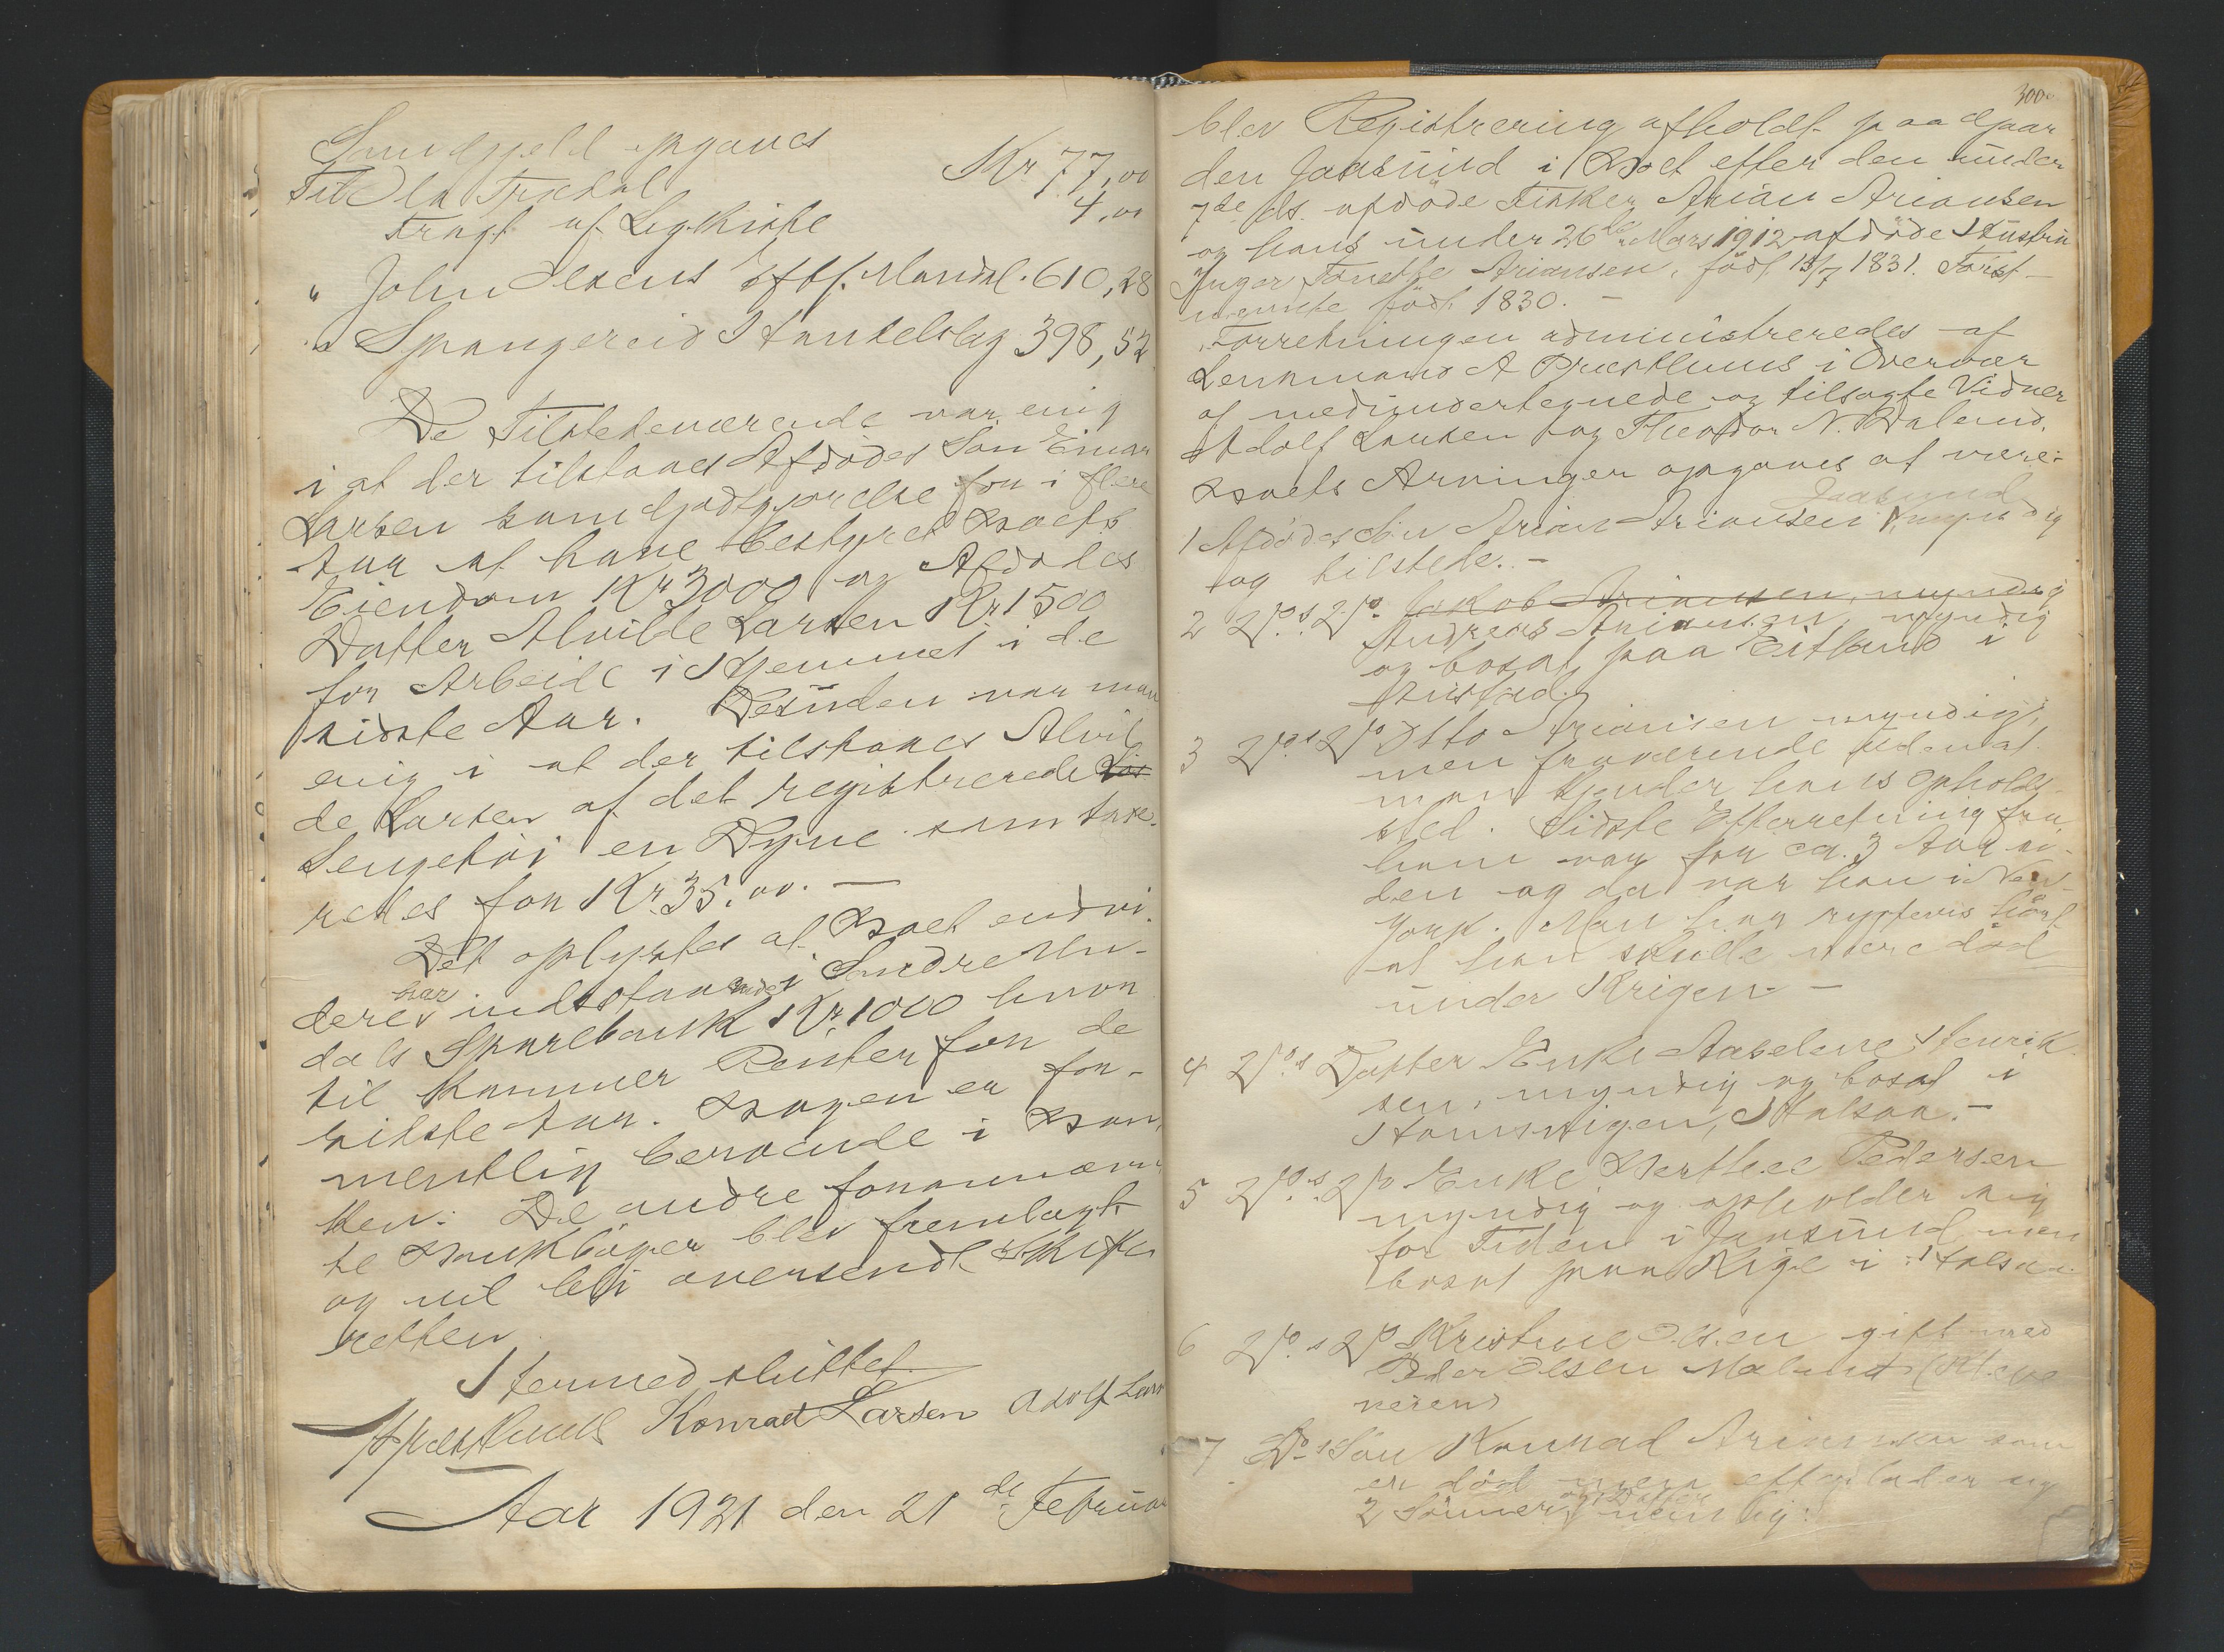 Samdgjeld opgaves
Til Ola Trædal Kr. 77,00
Fragt af Ligkiste 4,00
" John Olsens Eftf. Mandal. 610,28
" Spangereid Handelslag 398,52
De Tilstedeværende var enig
i at der tilstaaes Afdødes Søn Einar
Larsen som Godtgjørelse for i flere
Aar at have bestyret Boets
Eiendom Kr 3000 og Afdødes
Datter Alvilde Larsen Kr 1500
for Arbeide i Hjemmet i de
sidste Aar. Desuden var man
enig i at der tilstaaes Alvil
de Larsen af det registrerede
Sengetøi en Dyne som taxe-
redes for Kr. 35,00. —
Det oplystes at Boet endvi
dere har indestaaende i Søndre Un-
dals Sparebank Kr. 1000 hvor
til kommer Renter for de
sidste Aar. Bogen er for-
mentlig beroende i Ban
ken. De andre forannævn
te Bankbøger blev fremlagt
og vil bli oversendt Skifte
retten
Hermed sluttet.
A Præsthuus Konrad Larsen Adolf Lars
Aar 1921 den 21de Februar
300
blev Registrering afholdt paa Gaar
den Jaasund i Boet efter den under
7de ds. afdøde Fisker Arian Ariansen
og hans under 26de Mars 1912 afdøde Hustru
Inger Tonette Ariansen, født 13/7 1831. Først-
nævnte født 1830. —
Forretningen administreredes af
Lensmand A Præsthuus i Overvær
af medundertegnede og tilsagte Vidner
Adolf Larsen og Theodor N. Valand.
Boets Arvinger opgaves at være:
1 Afdødes Søn Arian Ariansen Jaasund, myndig
og tilstede. —
2 Do.s Do. Jakob Ariansen, myndig
Andreas Ariansen, myndig
og bosat paa Eitland i
3 Do.s Do Otto Ariansen myndig,
men fraværende uden at
man kjender hans Opholds-
sted. Sidste Efterretning fra
ham var for ca. 3 Aar si-
den og da var han i New-
York. Man har rygtevis hørt
at han skulle være død
under Krigen. —
4 Do.s Datter Enke Aaselene Henrik
sen, myndig og bosat i
Halsaa. —
5 Do.s Do Enke Berthee Pedersen
myndig og opholder sig
for Tiden i Jaasund men
bosat paa Rige i Halsaa.
6 Do.s Do Kristine Olsen gift med
Peder Olsen
7 Do.s Søn Konrad Ariansen som
er død men efterlader sig
2 Sønner og Datter nemlig: